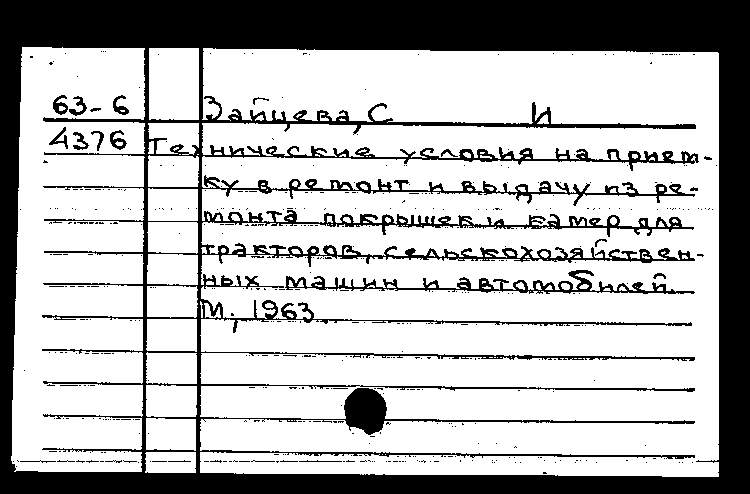 63-6 Зайцева, С И
4376 Технические условия на прием-
ку в ремонт и выдачу из ре-
монта покрышек и камер для
тракторов, сельскохозяйствен-
ных машин и автомобилей.
М., 1963.